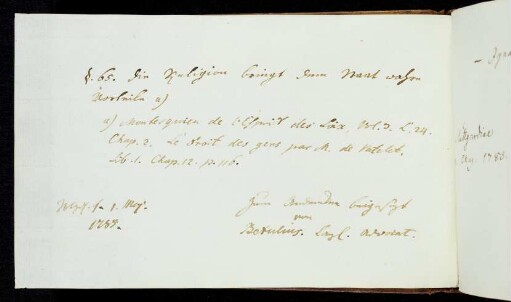 §. 65. Die Religion bringt dem Staat wahre
Vortheile a)
a) Montesquieu de l'Esprit des Loix. Vol. 3. L. 24.
Chap. 2. Le droit des gens par M. de Vattel.
Lib. 1. Chap. 12. p. 116.
1. May.
1783.
Zum Andenken beygefügt
von
Betulius. Kayl. Advocat.
May 1783.